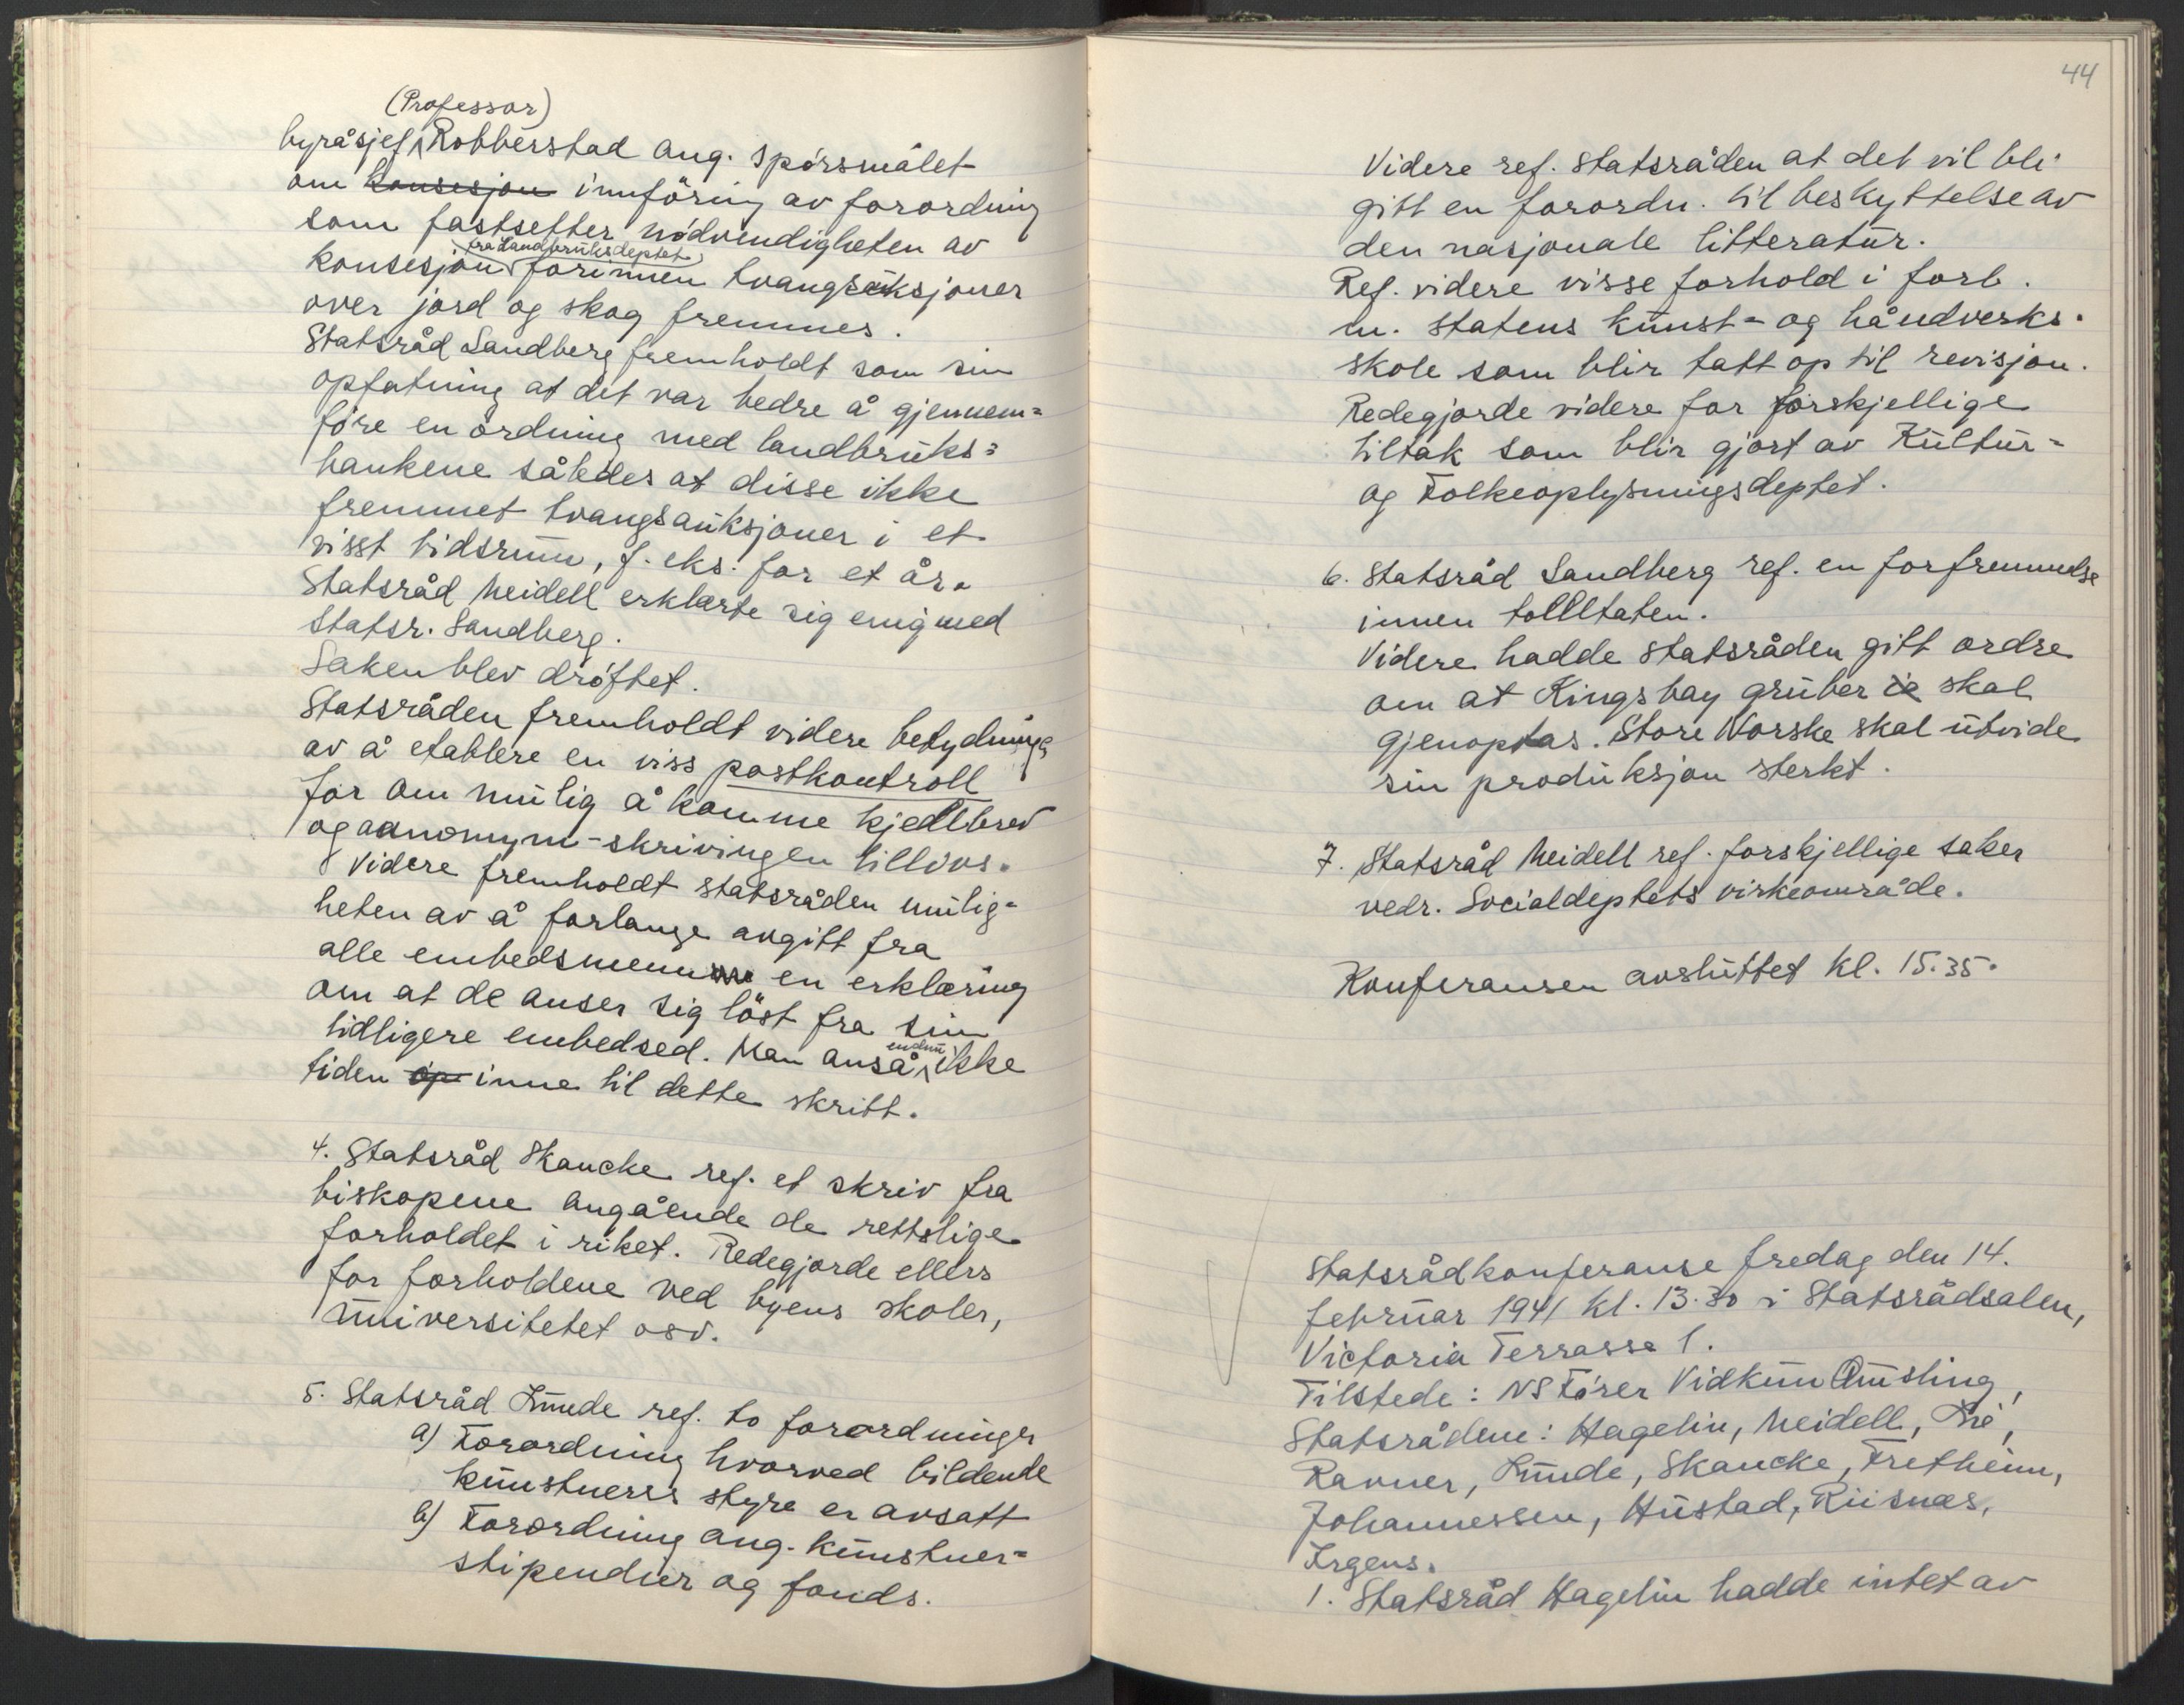 (Professor)
byråsjef Robberstad ang. spörsmålet
om konsesjon innföring av forordning
som fastsetter nödvendigheten av
fra Landbruksdeptet
konsesjon forinnen tvangsauksjoner
over jord og skog fremmes.
Statsråd Sandberg fremholdt som sin
opfatning at det var bedre å gjennem=
före en ordning med landbruks=
bankene således at disse ikke
fremmet tvangsauksjoner i et
visst tidsrum, f. eks. for et år.
Statsråd Meidell erklærte sig enig med
Statsr. Sandberg.
Saken blev dröftet.
Statsråden fremholdt videre betydningen
av å etablere en viss postkontroll
for om mulig å komme kjedebrev
og anonym-skrivingen tillivs.
Videre fremholdt statsråden mulig=
heten av å forlange avgitt fra
alle embedsmenn en erklæring
om at de anser sig löst fra sin
tidligere embedsed. Man anså ikke
endnu
tiden op inne til dette skritt.
4. Statsråd Skancke ref. et skriv fra
biskopene angående de rettslige
forholdet i riket. Redegjorde ellers
for forholdene ved byens skoler,
universitetet osv.
5. Statsråd Lunde ref. to forordninger
a) Forordning hvorved bildende
kunstneres styre er avsatt
b) Forordning ang. kunstner=
stipendier og fonds.
44
Videre ref. statsråden at det vil bli
gitt en forordn. til beskyttelse av
den nasjonale litteratur.
Ref. videre visse forhold i forb.
m. statens kunst= og håndverks.
skole som blir tatt op til revisjon.
Redegjorde videre for forskjellige
tiltak som blir gjort av Kultur=
og Folkeoplysningsdeptet.
6. Statsråd Sandberg ref. en forfremmelse
innen tolletaten.
Videre hadde statsråden gitt ordre
om at Kingsbay gruber skal
gjenoptas. Store Norske skal utvide
sin produksjon sterkt.
7. Statsråd Meidell ref. forskjellige saker
vedr. Socialdeptets virkeområde.
Konferansen avsluttet kl. 15.35.
Statsrådkonferanse fredag den 14.
februar 1941 kl. 13.30 i Statsrådsalen,
Victoria Terrasse 1.
Tilstede: NS Förer Vidkun Quisling,
Statsrådene: Hagelin, Meidell, Lie,
Ravner, Lunde, Skancke, Fretheim,
Johannessen, Hustad, Riisnæs,
Irgens.
1. Statsråd Hagelin hadde intet av